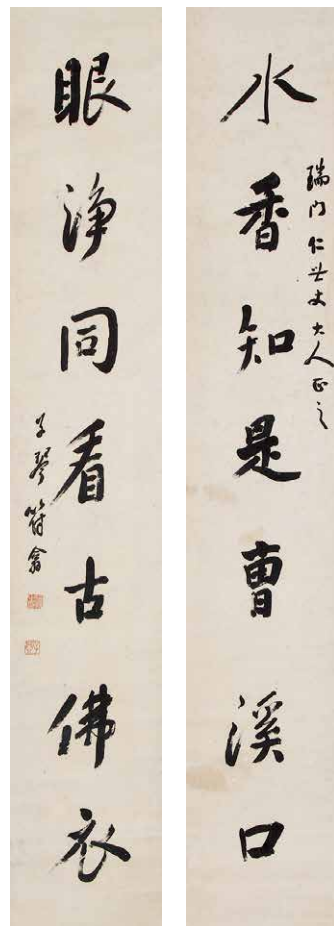 水香知是曹溪口
瑞门仁世丈大人正之
眼浄同看古佛衣
子琴符翕